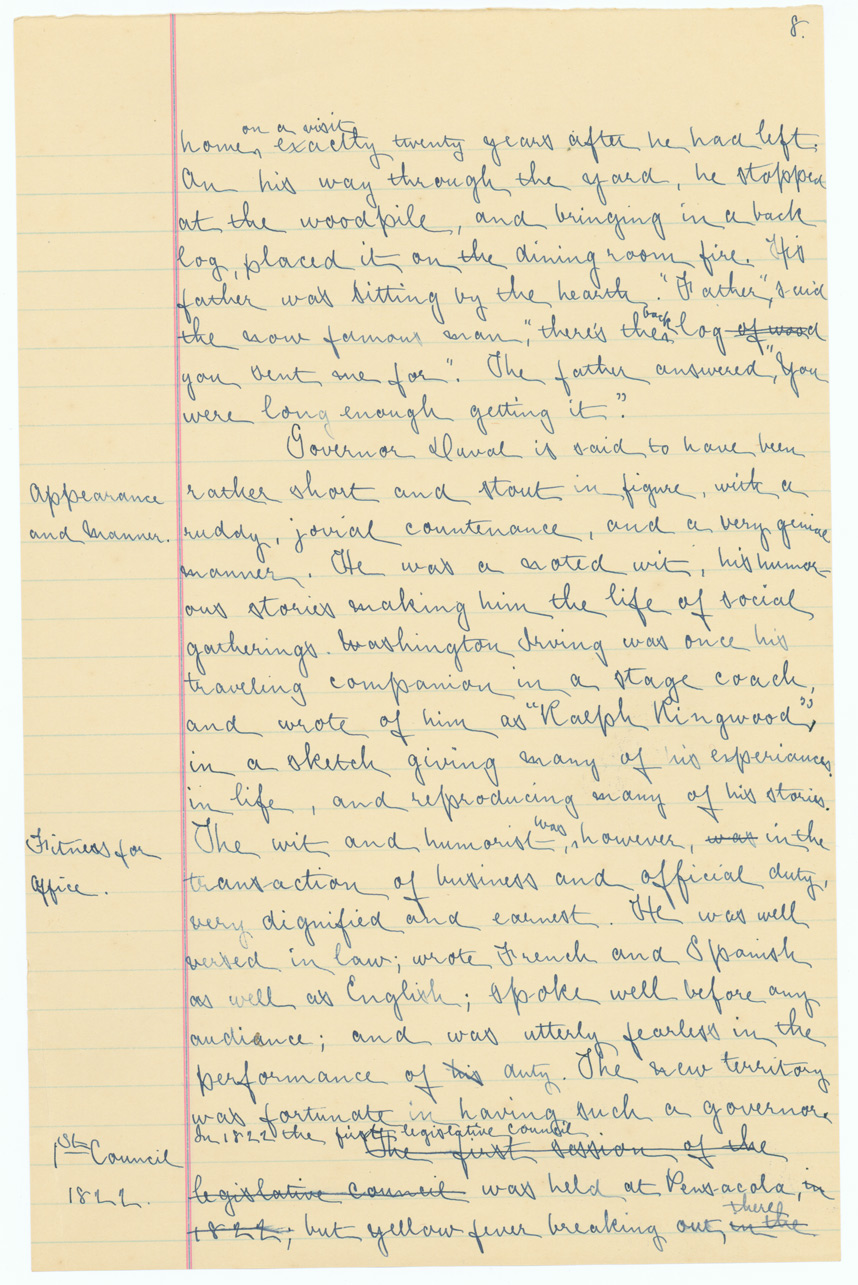 8.
on a visit
home, exactly twenty years after he had left.
On his way through the yard, he stopped
at the woodpile, and bringing in a back
log, placed it on the dining room fire. His
father was sitting by the hearth. "Father", said
the now famous man, "there's the back log of wood
you sent me for". The father answered, "You
were long enough getting it".
Governor Duval is said to have been
Appearance
rather short and stout in figure, with a
and Manner.
ruddy, jovial countenance, and a very genial
manner. He was a noted wit, his humor-
ous stories making him the life of social
gatherings. Washington Irving was once his
traveling companion in a stage coach,
and wrote of him as "Ralph Ringwood",
in a sketch giving many of his experiances
in life, and reproducing many of his stories.
Fitness for
The wit and humorist was, however, was in the
Office.
transaction of business and official duty,
very dignified and earnest. He was well
versed in law; wrote French and Spanish
as well as English; spoke well before any
audiance; and was utterly fearless in the
performance of his duty. The new territory
was fortunate in having such a governor.
In 1822 the first legislative council
1st Council
The first session of the
1822.
legislative council was held at Pensacola, in
there
1822; but yellow fever breaking out, in the